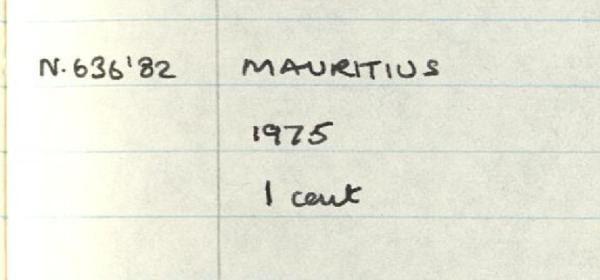 N.636'82 MAURITIUS
1975
1 cent